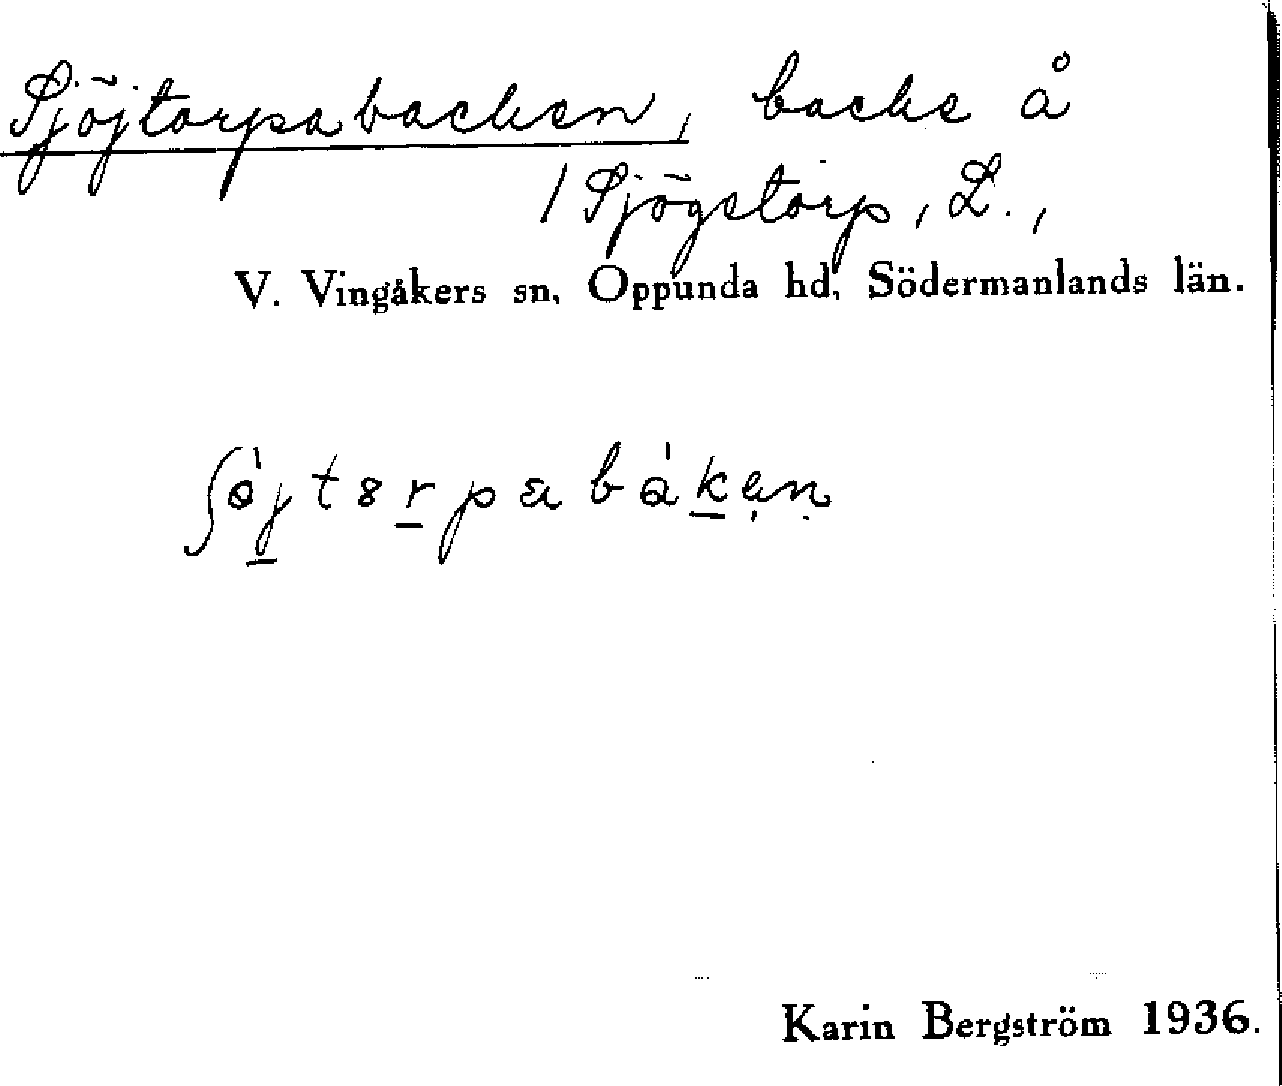 Sjöjtorpabacken, backe å
/ Sjögetorp, L.,
V. Vingåkers sn, Oppunda hd, Södermanlands län.
ʃö̀jtȣrpabákən
Karin Bergström 1936.